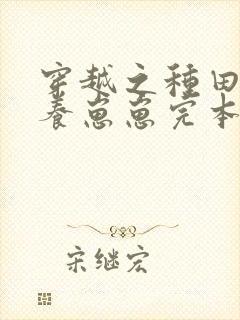 穿越之種田
養崽崽完本
宋继宏